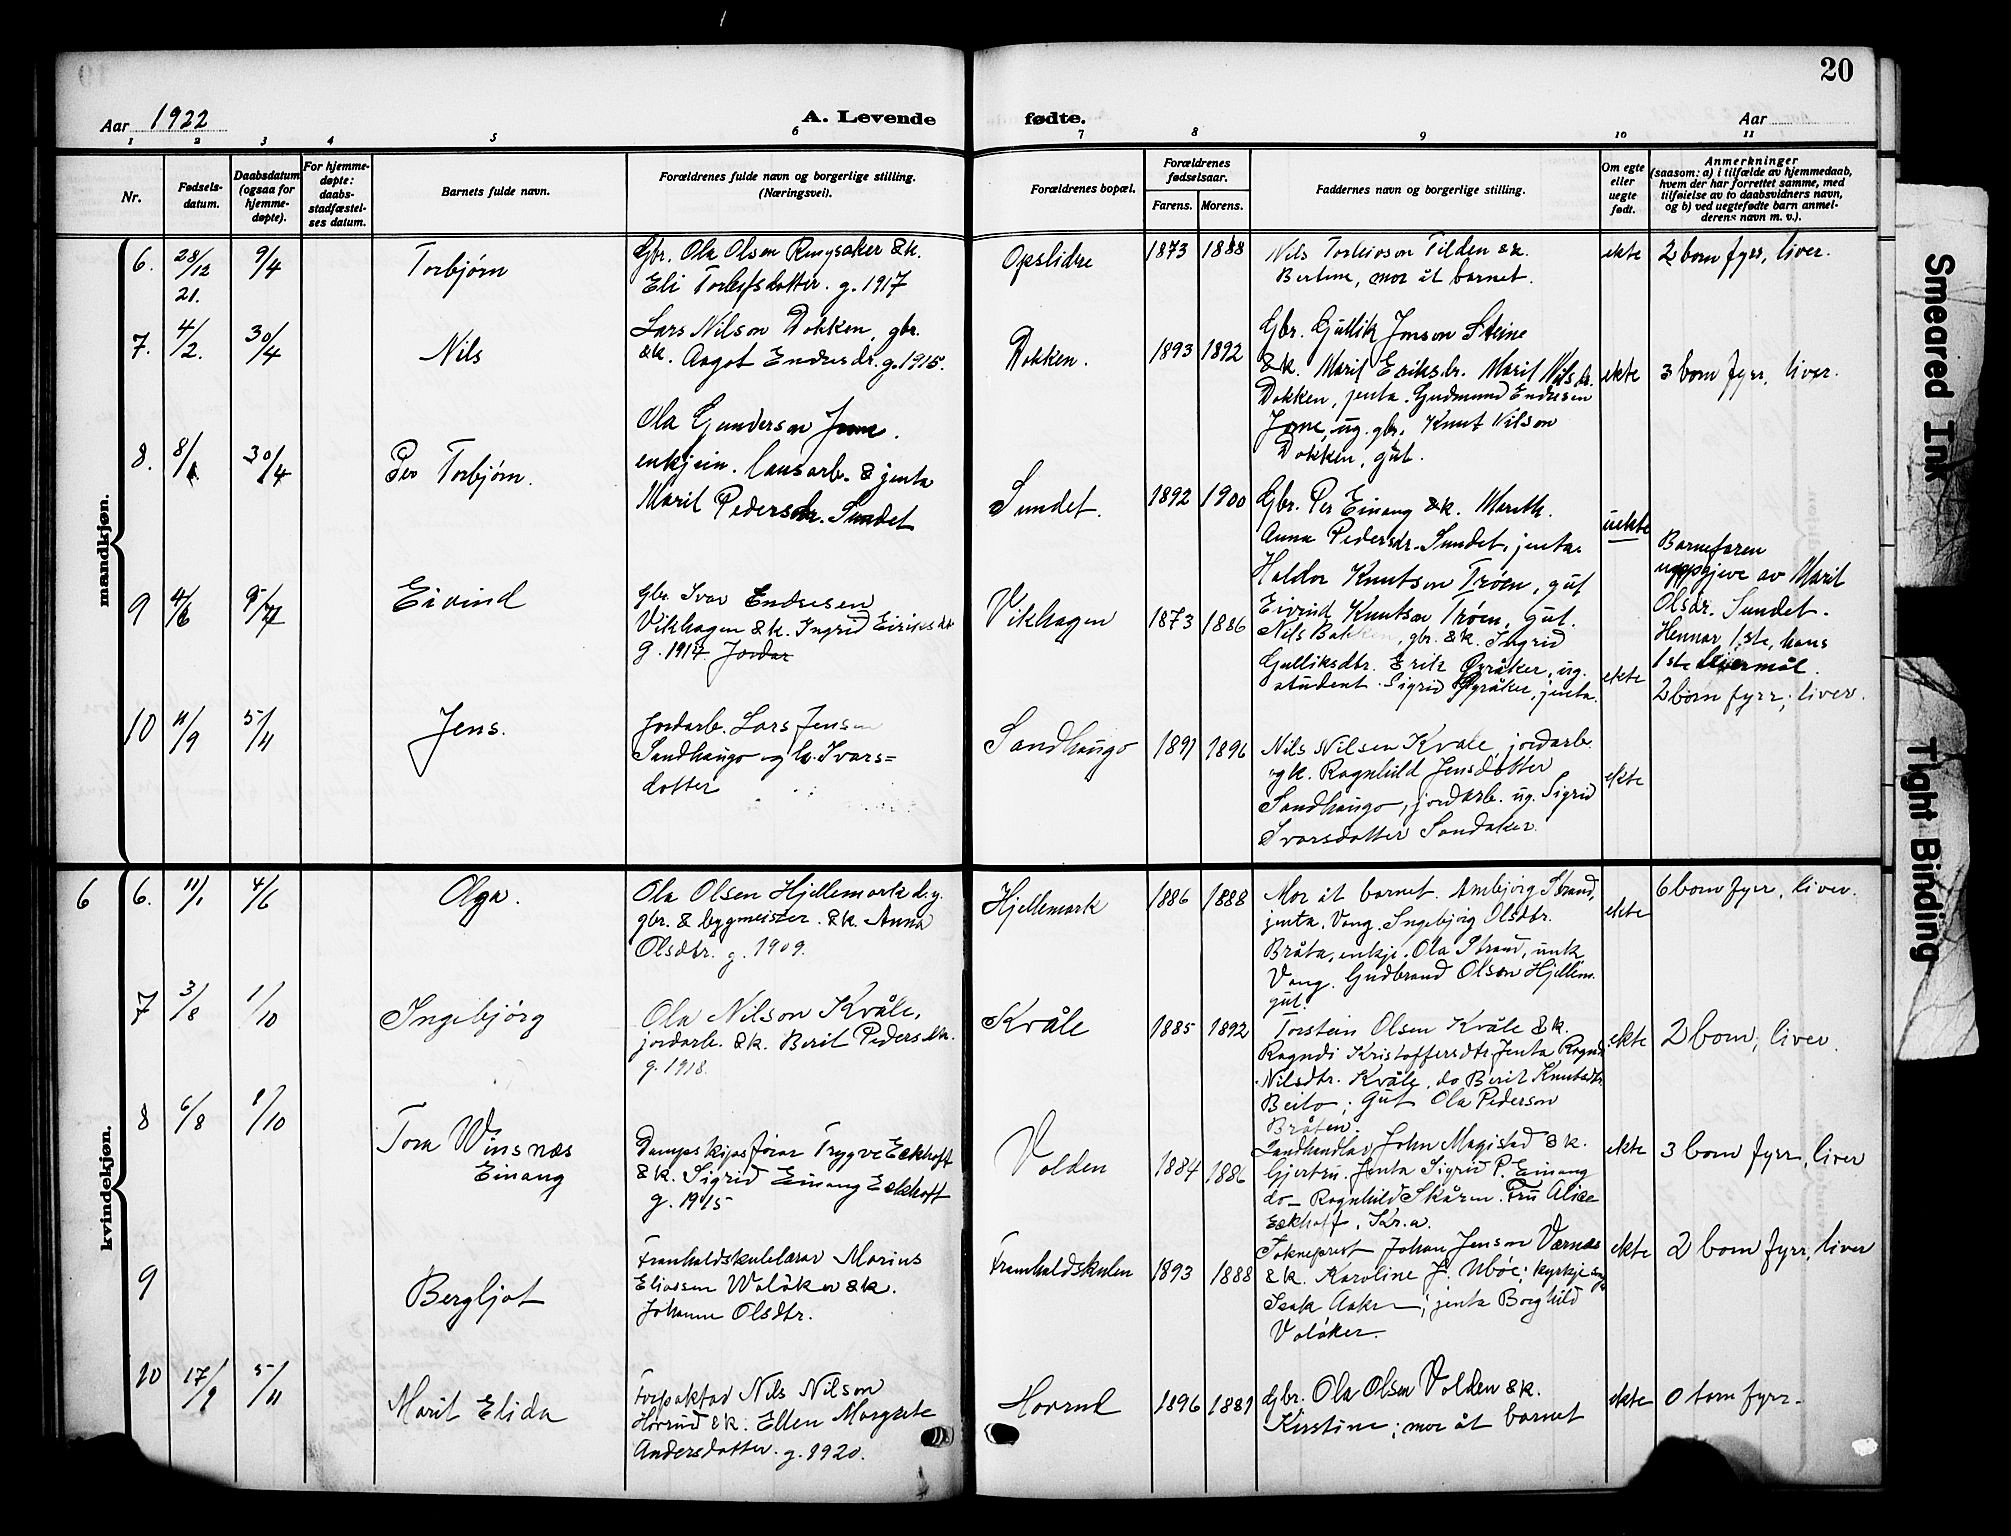 20
Aar 1922
A. Levende fødte.
Aar
1 2 3 4 5 6 7 8 9 10 11
Nr.
Fødsels-
datum.
Daabsdatum
(ogsaa for
hjemme-
døpte).
For hjemme-
døpte:
daabs-
stadfæstel-
ses datum.
Barnets fulde navn.
Forældrenes fulde navn og borgerlige stilling.
(Næringsvei).
Forældrenes bopæl.
Forældrenes
fødselsaar.
Farens. Morens.
Faddernes navn og borgerlige stilling.
Om egte
eller
uegte
født.
Anmerkninger
(saasom: a) i tilfælde av hjemmedaab,
hvem der har forrettet samme, med
tilføielse av to daabsvidners navn,
og b) ved uegtefødte barn anmel-
derens navn m. v.).
mandkjøn.
6. 28/12 21. 9/4
Torbjørn
Gbr. Ola Olsen Ringsaker &k.
Eli Torleifsdotter. g. 1917
Opslidre
1873 1888
Nils Torleivson Tilden &k.
Bertine, mor åt barnet.
ekte
2 born fyrr, liver.
7. 4/2. 30/4
Nils
Lars Nilson Dokken, gbr.
&k. Aagot Endresdr. g. 1915.
Dokken.
1893 1892
Gbr. Gullik Jonson Steine
&k. Marit Eriksdr. Marit Nilsdr.
Dokken, jenta. Gudmund Endresen
Jome, ug. gbr. Knut Nilson
Dokken, gut.
ekte
3 born fyrr, liver.
8. 8/1 30/4
Per Torbjørn.
Ola Gunderson Jome.
enkjem. lausarb. & jenta
Marit Pedersdr. Sundet
Sundet.
1892 1900
Gbr. Per Einang &k. Marith.
Anna Pedersdr. Sundet, jenta.
Haldor Knutson Trøen, gut
Eivind Knutson Trøen, gut.
uekte
Barnefaren
uppgjeve av Marit
Olsdr. Sundet.
Hennar 1ste, hans
1ste leiermål.
9 4/6 9/7
Eivind
Gbr. Ivar Endresen
Vikhagen &k. Ingrid Eiriksdr
g. 1917. Jordar
Vikhagen
1873 1886
Nils Bakken, gbr. &k. Ingrid
Gulliksdtr. Erik Øyråker, ug.
student. Sigrid Øyråker, jenta.
ekte
2 born fyrr; liver.
10 11/9 5/11
Jens.
Jordarb. Lars Jensen
Sandhaugo og k. Ivars=
dotter
Sandhaugo
1891 1896
Nils Nilsen Kvale, jordarb.
og k. Ragnhild Jensdotter
Sandhaugo, jordarb. ug. Sigrid
Ivarsdotter Sandaker.
ekte
kvindekjøn.
6 6. 11/1 4/6
Olga.
Ola Olsen Hjellemark d.y.
gbr. & bygmeister. &k. Anna
Olsdtr. g. 1909.
Hjellemark
1886 1888
Mor åt barnet. Ambjørg Strand,
jenta, Vang. Ingebjørg Olsdtr.
Bråta, enkje. Ola Strand, unk.
Vang. Gudbrand Olson Hjellem.
gut.
ekte
6 born fyrr, liver.
7 3/8 1/10
Ingebjørg
Ola Nilson Kvåle,
jordarb. &k. Berit Pedersdtr.
g. 1918.
Kvåle
1885 1892
Torstein Olsen Kvåle &k.
Ragndi Kristoffersdtr. Jenta Ragndi
Nilsdtr. Kvåle, do Berit Knutsdtr.
Beito; Gut Ola Pederson
Bråten.
ekte
2 born; liver.
8 6/8 1/10
Tora Winsnæs
Einang
Dampskipsførar Trygve Eckhoff
&k. Sigrid Einang Eckhoff
g. 1915
Volden
1884 1886
Landhandlar John Magistad &k.
Gjertru. Jenta Sigrid P. Einang
do- Ragnhild Skåren. Fru Alice
Eckhoff, Kr.a.
ekte
3 born fyrr, liver
9
Bergljot
Framhaldskulelærar Marius
Eliassen Waløker &k.
Johanne Olsdtr.
Framhaldskulen
1893 1888
Sokneprest Johan Jenson Værnæs
&k. Karoline J. Ubøe; kyrkjesong.
Isak Aaker; jenta Borghild
Valöker.
ekte
2 born fyrr, liver
10 17/9 5/11
Marit Elida
Forpaktar Nils Nilson
Hovrud &k. Ellen Margrete
Andersdotter. g. 1920.
Hovrud
1896 1881
Gbr. Ola Olson Volden &k.
Kirstine; mor åt barnet
ekte
0 born fyrr.
Smeared Ink
Tight Binding